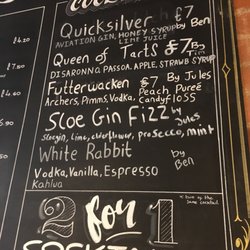 Quicksilver £7
AVIATION GIN, HONEY SYRUP by Ben
LIME JUICE
Queen of Tarts £7 By Tim
DISARONNO, PASSOA, APPLE, STRAWB SYRUP
Futterwacken £7 By Jules
Archers, Pimms, Vodka, Peach Pureé
Candyfloss
Sloe Gin Fizz by Jules
Sloegin, Lime, elderflower, prosecco, mint
White Rabbit
by Ben
Vodka, Vanilla, Espresso
Kahlua
2 for 1